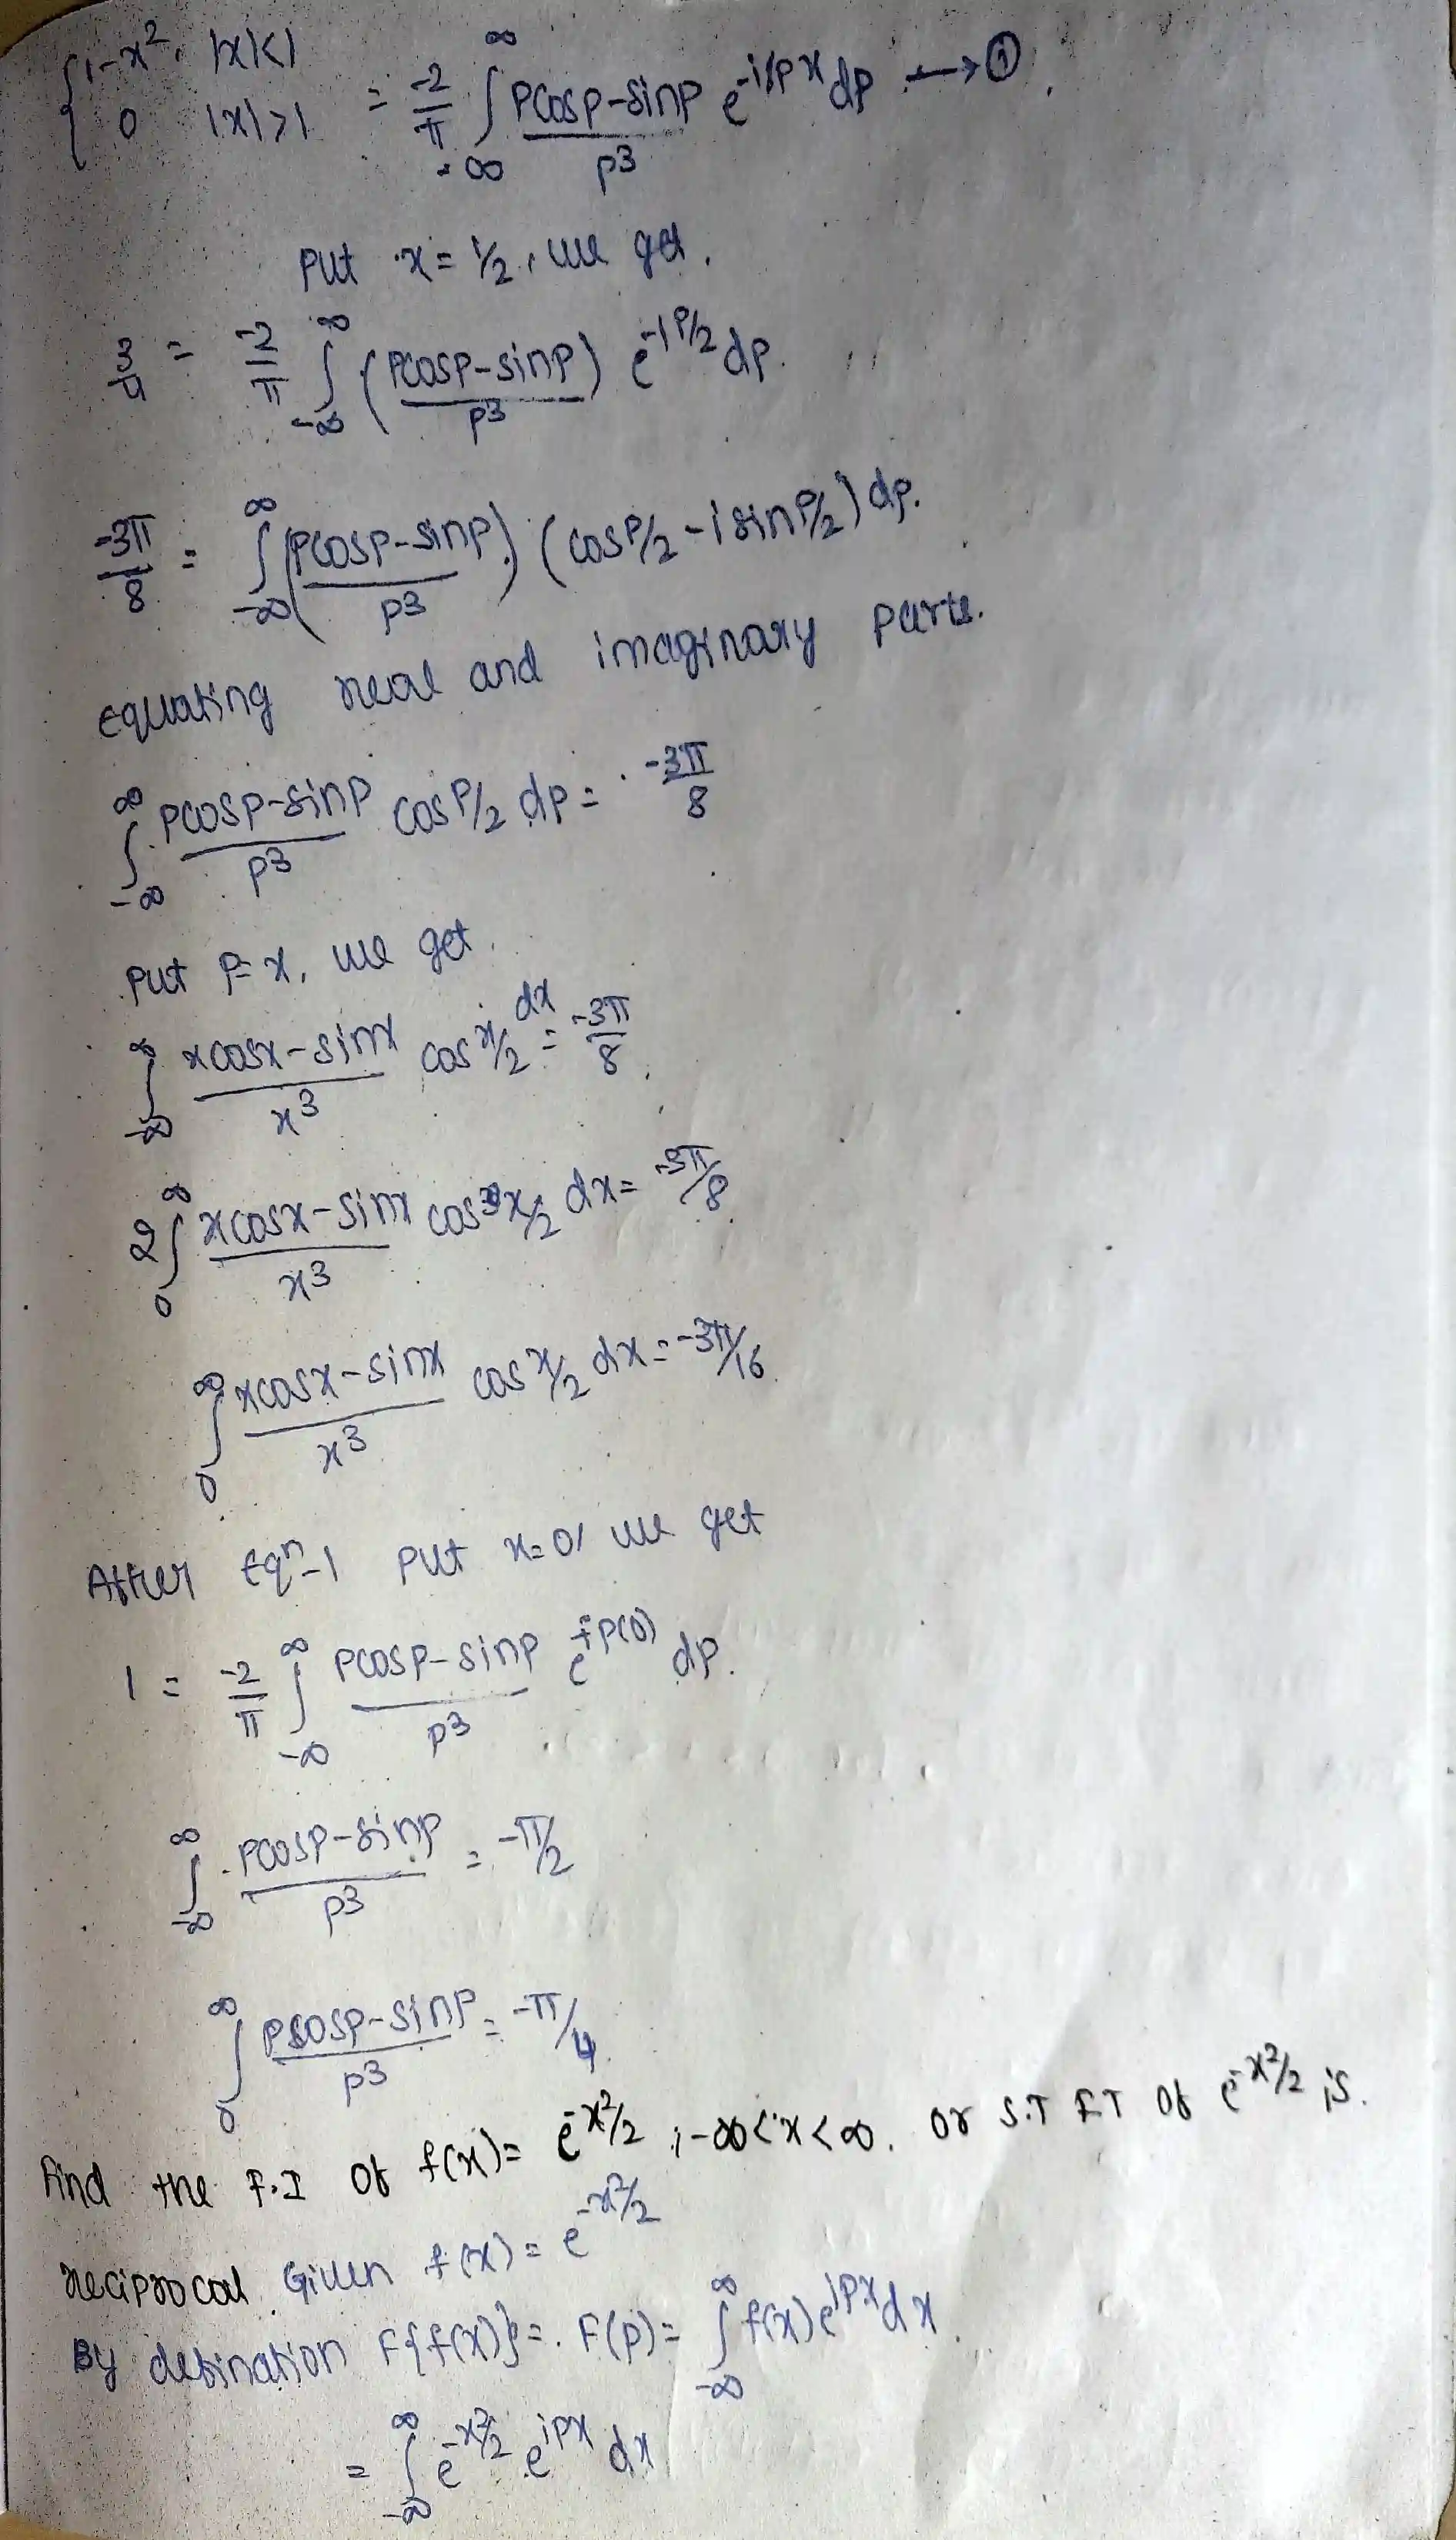 {1-x², |x|<1
0 |x|>1 = -2/π ∫_{-∞}^{∞} (PCosP-sinP)/p³ e^{-ipx} dp → ①
Put x = 1/2, we get.
3/4 = -2/π ∫_{-∞}^{∞} ((PCosP-sinP)/p³) e^{-ip/2} dp.
-3π/8 = ∫_{-∞}^{∞} ((PCosP-sinP)/p³) (cosP/2 - i sinP/2) dp.
Equating real and imaginary parts.
∫_{-∞}^{∞} (PCosP-sinP)/p³ cosP/2 dp = -3π/8
Put P=x, we get.
∫_{-∞}^{∞} (xcosx-sinx)/x³ cos x/2 dx = -3π/8.
2∫_{0}^{∞} (xcosx-sinx)/x³ cos x/2 dx = -3π/8
∫_{0}^{∞} (xcosx-sinx)/x³ cos x/2 dx = -3π/16.
After Eqⁿ-1 put x=0, we get
1 = -2/π ∫_{-∞}^{∞} (PCosP-sinP)/p³ e^{ip(0)} dp.
∫_{-∞}^{∞} (PCosP-sinP)/p³ = -π/2
∫_{0}^{∞} (PCosP-sinP)/p³ = -π/4.
Find the F.I of f(x)= e^{-x²/2}, -∞<x<∞. or S.T F.T of e^{-x²/2} is.
reciprocal. Given f(x) = e^{-x²/2}
By defination F{f(x)} = F(p) = ∫_{-∞}^{∞} f(x) e^{ipx} dx.
= ∫_{-∞}^{∞} e^{-x²/2} e^{ipx} dx